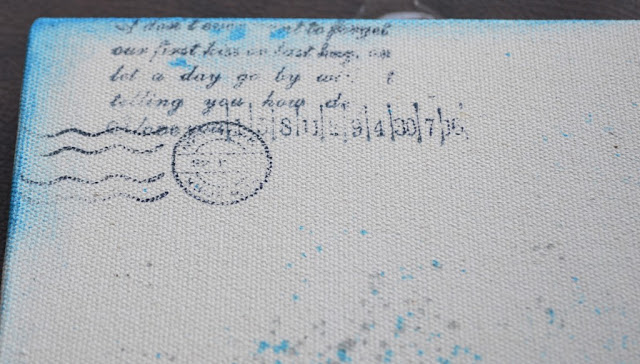 I don't ever want to forget
our first kiss or last hug, or
let a day go by wi t
telling you how de
I love you
8 11 2 9 4 30 7 36